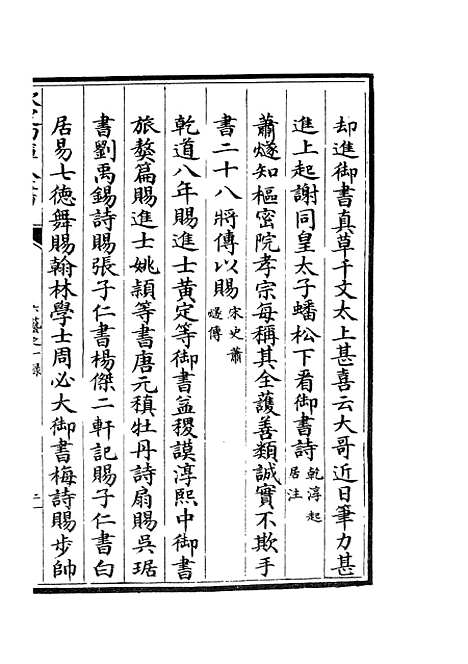 却進御書真草千文太上甚喜云大哥近日筆力甚
進上起謝同皇太子蟠松下看御書詩乾淳起居注
蕭燧知樞密院孝宗每稱其全護善類誠實不欺手
書二十八將傳以賜宋史蕭燧傳
乾道八年賜進士黃定等御書益稷謨淳熙中御書
旅獒篇賜進士姚穎等書唐元稹牡丹詩扇賜吳琚
書劉禹錫詩賜張子仁書楊傑二軒記賜子仁書白
居易七徳舞賜翰林學士周必大御書梅詩賜步帥
六藝之一錄